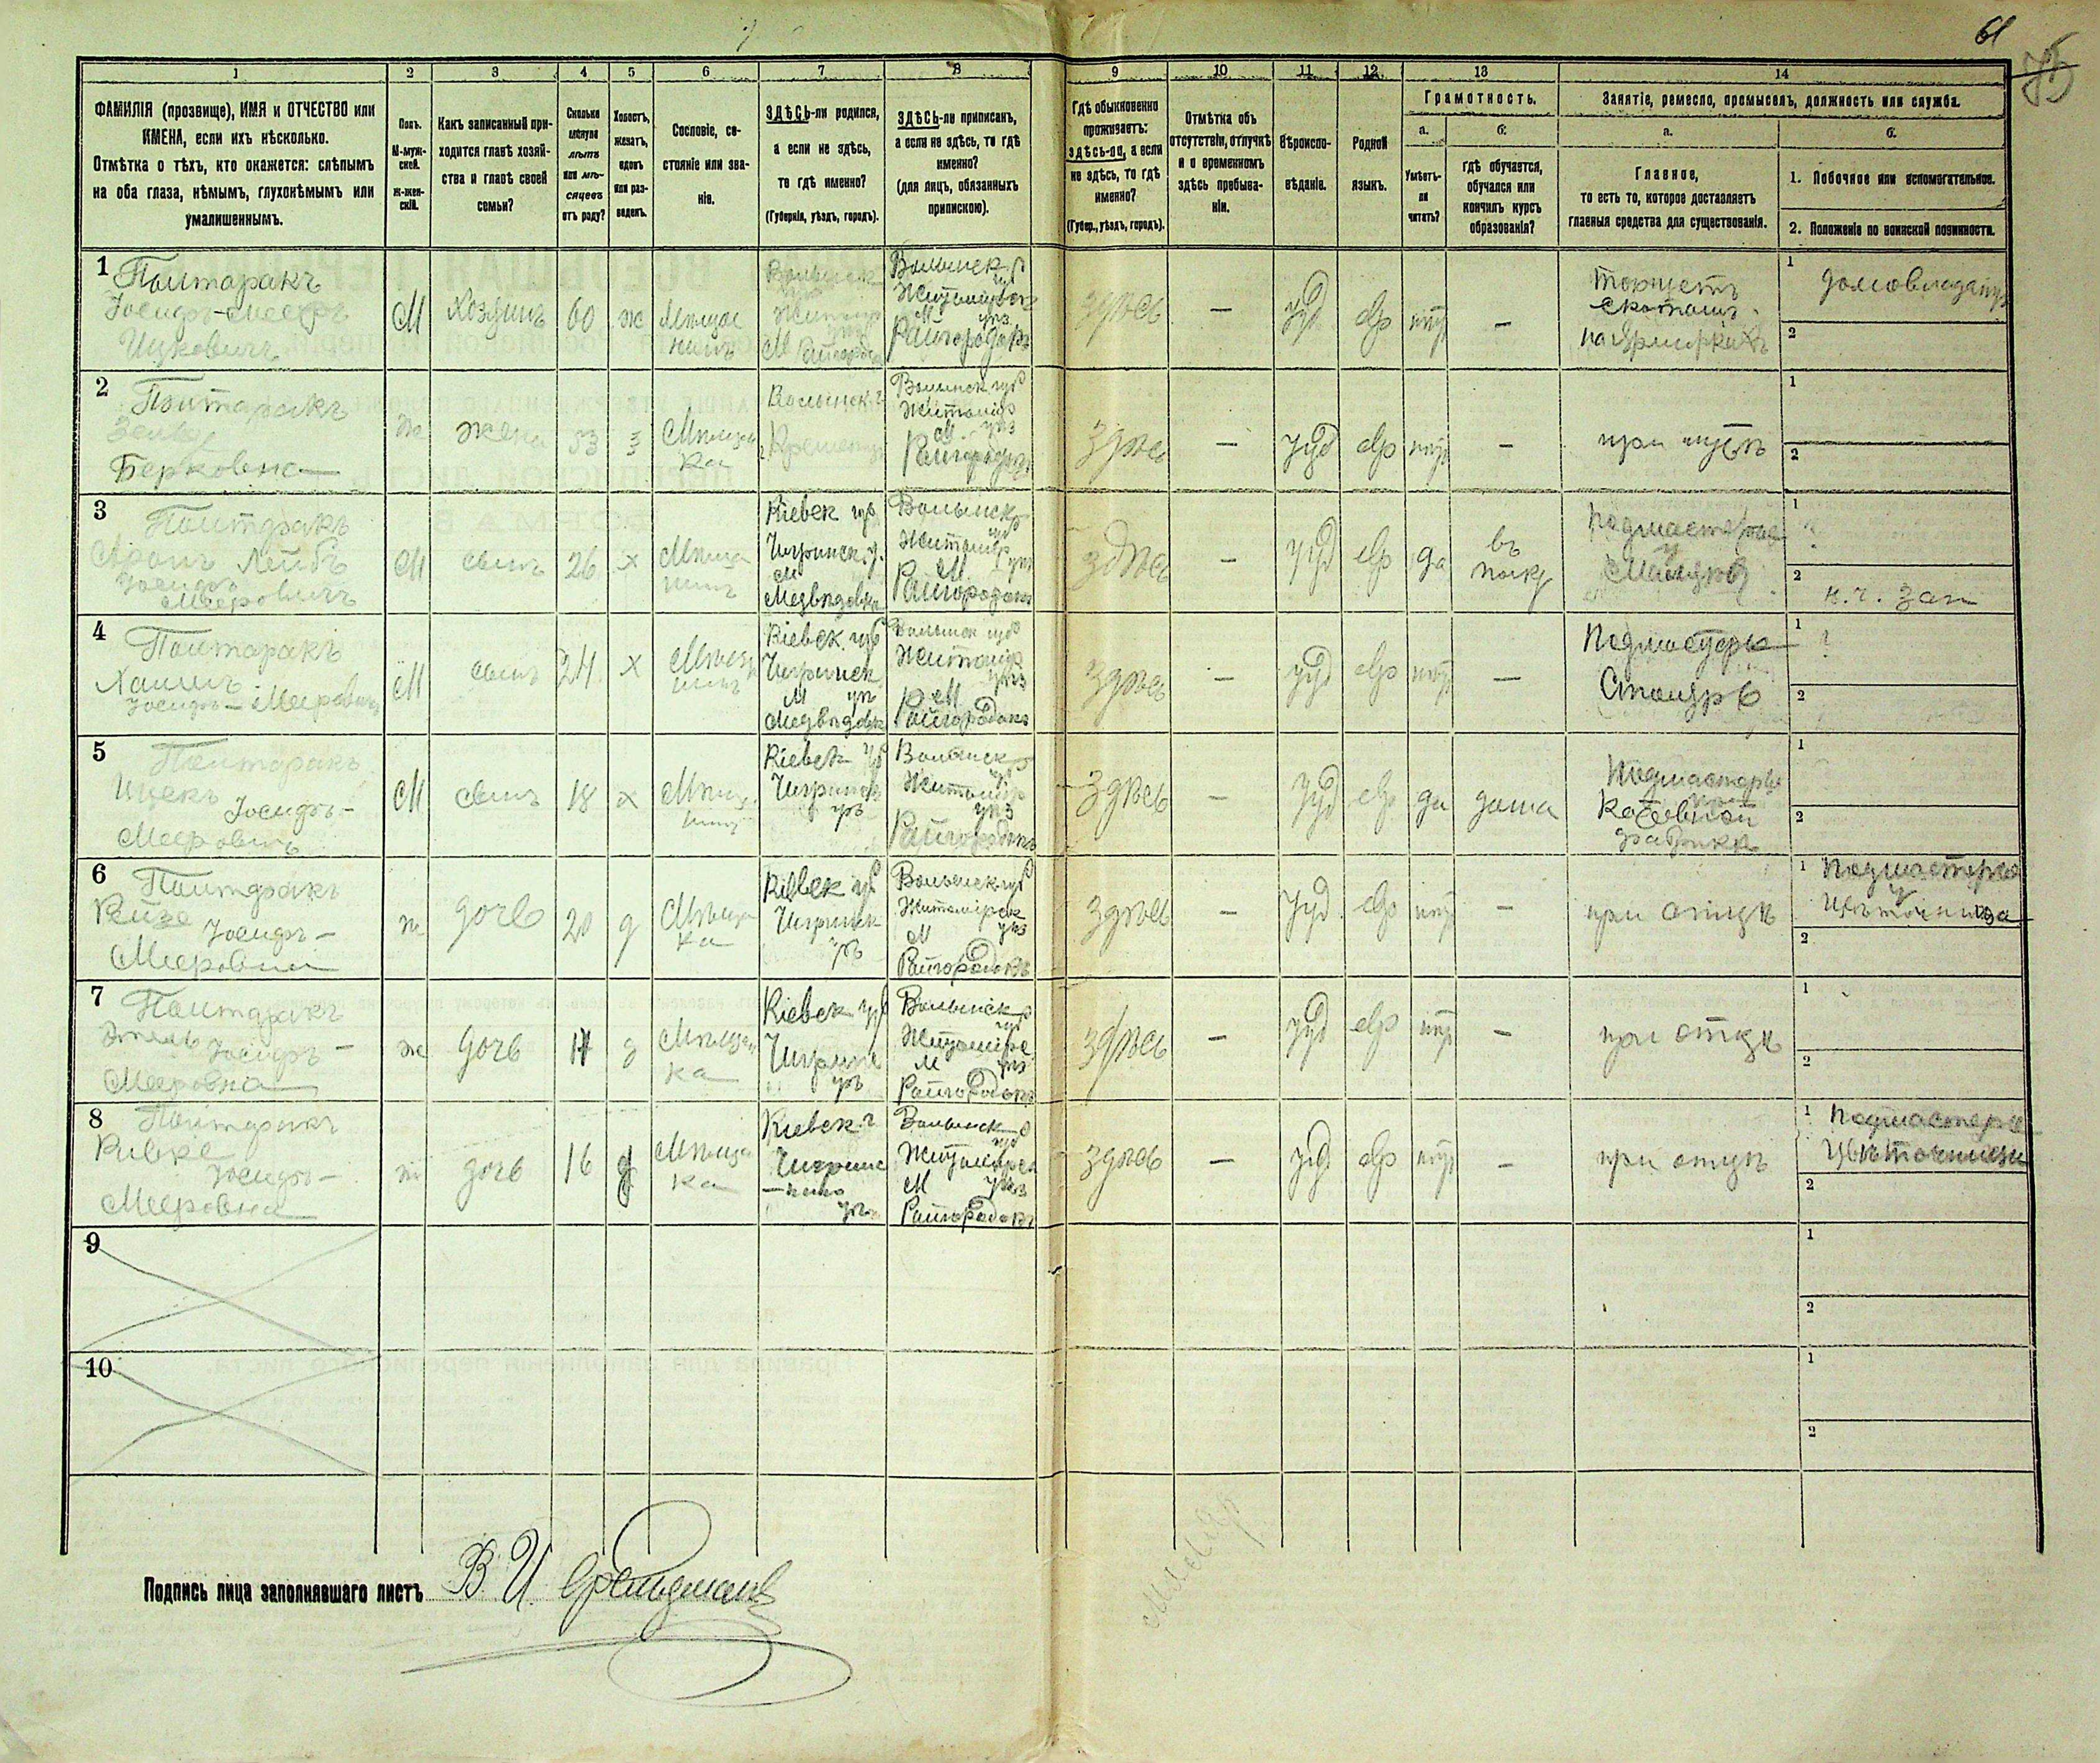 61
75
1 2 3 4 5 6 7 8 9 10 11 12 13 14
ФАМИЛІЯ (прозвище), ИМЯ и ОТЧЕСТВО или
ИМЕНА, если ихъ нѣсколько.
Отмѣтка о тѣхъ, кто окажется: слѣпымъ
на оба глаза, нѣмымъ, глухонѣмымъ или
умалишеннымъ.
Полъ.
М-муж-
ской.
Ж-жен-
скій.
Какъ записанный при-
ходится главѣ хозяй-
ства и главѣ своей
семьи?
Сколько
минуло
лѣтъ
или мѣ-
сяцевъ
отъ роду?
Холостъ,
женатъ,
вдовъ
или раз-
веденъ.
Сословіе, со-
стояніе или зва-
ніе.
ЗДѢСЬ-ли родился,
а если не здѣсь,
то гдѣ именно?
(Губернія, уѣздъ, городъ).
ЗДѢСЬ-ли приписанъ,
а если не здѣсь, то гдѣ
именно?
(для лицъ, обязанныхъ
припискою).
Гдѣ обыкновенно
проживаетъ:
здѣсь-ли, а если
не здѣсь, то гдѣ
именно?
(Губер., уѣздъ, городъ).
Отмѣтка объ
отсутствіи, отлучкѣ
и о временномъ
здѣсь пребыва-
ніи.
Вѣроиспо-
вѣданіе.
Родной
языкъ.
Грамотность.
а.
Умѣетъ-
ли
читать?
б.
гдѣ обучается,
обучался или
кончилъ курсъ
образованія?
Занятіе, ремесло, промыселъ, должность или служба.
а.
Главное,
то есть то, которое доставляетъ
главныя средства для существованія.
б.
1. Побочное или вспомогательное.
2. Положеніе по воинской повинности.
1
Полтаракъ
Іосифъ-Мееръ
Ицковичъ
М
хозяинъ
60
ж
Мѣща
нинъ
Волынск
М
Волынск
губ
Житомірск
М уѣз
Райгородокъ
здѣсь
—
іуд
евр
нѣт
—
торгуетъ
скотомъ
на ярмаркахъ
1 домовладѣ
2
2
Полтаракъ
Берковна
ж
жена
53
з
Мѣщан
ка
Волынск г
Кременец
Волынск губ
Житомір
М. уѣз
Райгородокъ
здѣсь
—
іуд
евр
нѣт
—
при мужѣ
1
2
3
Полтаракъ
Аронъ Лейбъ
Іосифъ
Мееровичъ
М
сынъ
26
х
Мѣща
нинъ
Кіевск губ
Чигринск. у.
М
Медвѣдовка
Волынск
губ
Житомір
М уѣз
Райгородокъ
здѣсь
—
іуд
евр
да
въ
подмастерье
1
2
н. ч. зап
4
Полтаракъ
Хаимъ
Іосифъ-Мееровичъ
М
сынъ
24
х
Мѣщан
нинъ
Кіевск. губ
Чигринск
М уѣ
Медвѣдовк
Волынск губ
Житомір
уѣз
М
Райгородокъ
здѣсь
—
іуд
евр
нѣт
—
Подмастерье
Столяръ
1
2
5
Полтаракъ
Ицекъ Іосифъ-
Мееровичъ
М
сынъ
18
х
Мѣщ
нинъ
Кіевск губ
Чигринск
уѣ
Волынск
губ
Житомір
уѣз
Райгородокъ
здѣсь
—
іуд
евр
да
дома
Подмастерье
фабрики
1
2
6
Полтаракъ
Рейза Іосифъ-
Мееровна
ж
дочь
20
д
Мѣща
ка
Кіевск губ
Чигринск
уѣ
Волынск губ
Житомірск
М уѣз
Райгородокъ
здѣсь
—
іуд
евр
нѣт
—
при отцѣ
1 Подмастерье
цвѣточница
2
7
Полтаракъ
Этель Іосифъ-
Мееровна
ж
дочь
д
Мѣщан
ка
Кіевск губ
Чигринс
уѣ
Волынск
губ
Житомірс
М уѣз
Райгородокъ
здѣсь
—
іуд
евр
нѣт
—
при отцѣ
1
2
8
Полтаракъ
Ривке
Іосифъ-
Мееровна
ж
дочь
16
д
Мѣщан
ка
Кіевск. г
Чигринс
уѣ
Волынск
губ
Житомірск
М уѣз
Райгородокъ
здѣсь
—
іуд
евр
нѣт
—
при отцѣ
1 Подмастерье
цвѣточницы
2
9
1
2
10
1
2
Подпись лица заполнявшаго листъ В. И. Фельдманъ